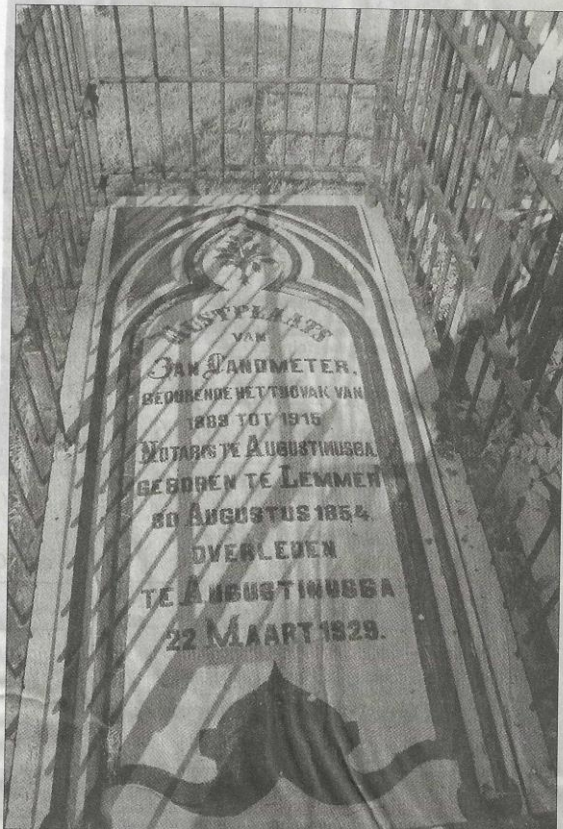 RUSTPLAATS
VAN
JAN LANDMETER,
GEDURENDE HET TIJDVAK VAN
1889 TOT 1915
NOTARIS TE AUGUSTINUSGA.
GEBOREN TE LEMMER
30 AUGUSTUS 1854,
OVERLEDEN
TE AUGUSTINUSGA
22 MAART 1929.